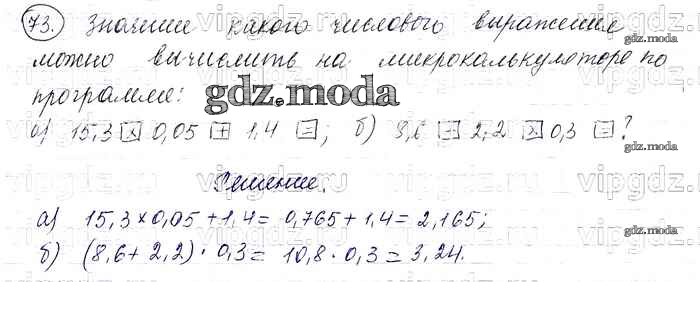 73. Значение какого числового выражения
можно вычислить на микрокалькуляторе по
программе:
gdz.moda
а) 15,3 × 0,05 + 1,4 =; б) 8,6 + 2,2 × 0,3 =?
Решение.
а) 15,3 × 0,05 + 1,4 = 0,765 + 1,4 = 2,165;
б) (8,6 + 2,2) · 0,3 = 10,8 · 0,3 = 3,24.
vipgdz.ru
gdz.moda